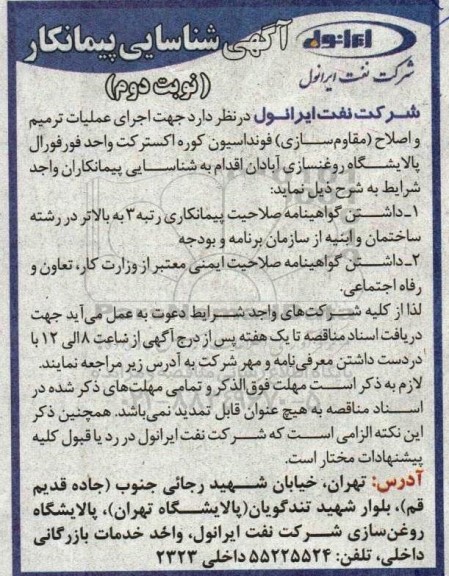 ایرانول
شرکت نفت ایرانول
آگهی شناسایی پیمانکار
(نوبت دوم)
شرکت نفت ایرانول در نظر دارد جهت اجرای عملیات ترمیم
و اصلاح (مقاوم‌سازی) فونداسیون کوره اکسترکت واحد فورفورال
پالایشگاه روغنسازی آبادان اقدام به شناسایی پیمانکاران واجد
شرایط به شرح ذیل نماید:
۱_داشتن گواهینامه صلاحیت پیمانکاری رتبه ۳ به بالاتر در رشته
ساختمان و ابنیه از سازمان برنامه و بودجه
۲_داشتن گواهینامه صلاحیت ایمنی معتبر از وزارت کار، تعاون و
رفاه اجتماعی.
لذا از کلیه شرکت‌های واجد شرایط دعوت به عمل می‌آید جهت
دریافت اسناد مناقصه تا یک هفته پس از درج آگهی از ساعت ۸ الی ۱۲ با
در دست داشتن معرفی‌نامه و مهر شرکت به آدرس زیر مراجعه نمایند.
لازم به ذکر است مهلت فوق‌الذکر و تمامی مهلت‌های ذکر شده در
اسناد مناقصه به هیچ عنوان قابل تمدید نمی‌باشد. همچنین ذکر
این نکته الزامی است که شرکت نفت ایرانول در رد یا قبول کلیه
پیشنهادات مختار است.
آدرس: تهران، خیابان شهید رجائی جنوب (جاده قدیم
قم)، بلوار شهید تندگویان(پالایشگاه تهران)، پالایشگاه
روغن‌سازی شرکت نفت ایرانول، واحد خدمات بازرگانی
داخلی، تلفن: ۵۵۲۲۵۵۲۴ داخلی ۲۳۲۳